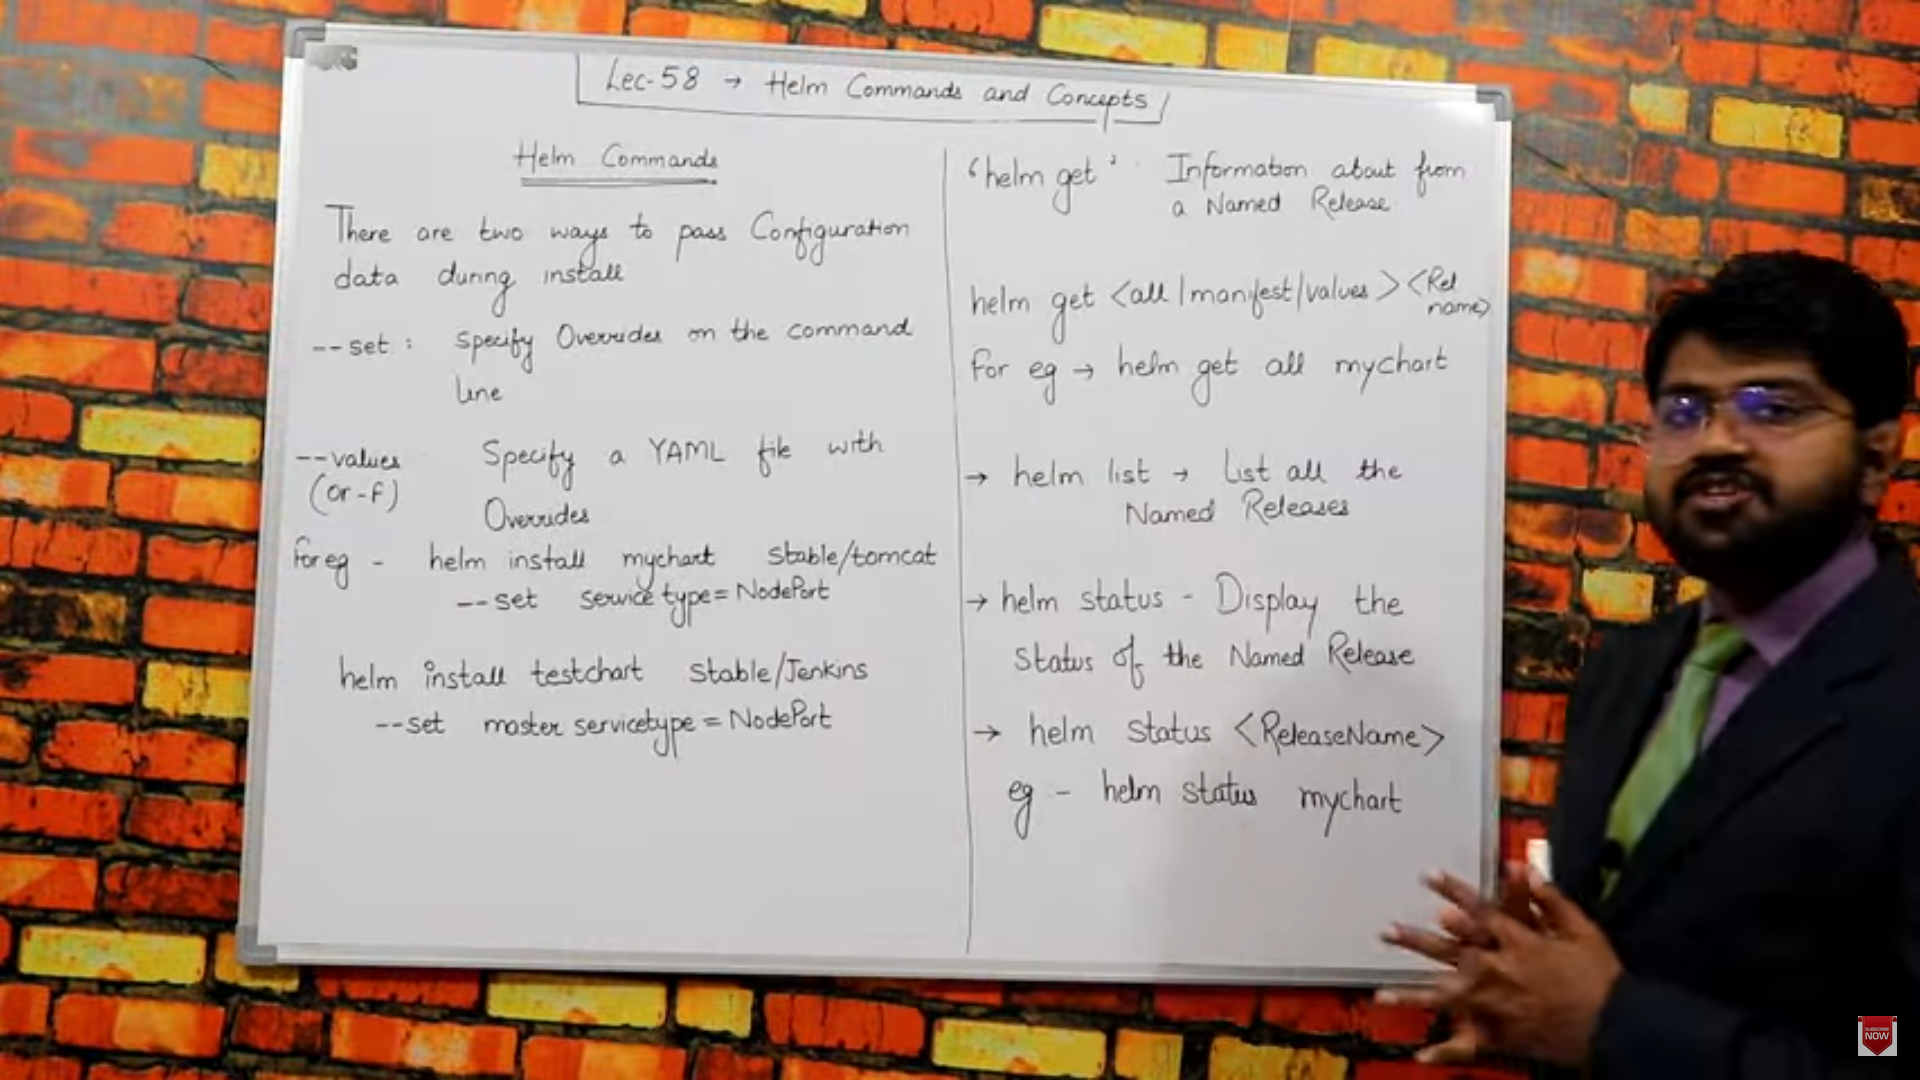 Lec-58 → Helm Commands and Concepts
Helm Commands
There are two ways to pass Configuration
data during install
--set : specify Overrides on the command
line
--values Specify a YAML file with
(or -f)
Overrides
For eg - helm install mychart stable/tomcat
--set service type = NodePort
helm install testchart stable/Jenkins
--set master servicetype = NodePort
'helm get' : Information about from
a Named Release
helm get <all | manifest | values> <Rel
name>
for eg → helm get all mychart
→ helm list → List all the
Named Releases
→ helm status - Display the
Status of the Named Release
→ helm status <ReleaseName>
eg - helm status mychart
SUBSCRIBE
NOW